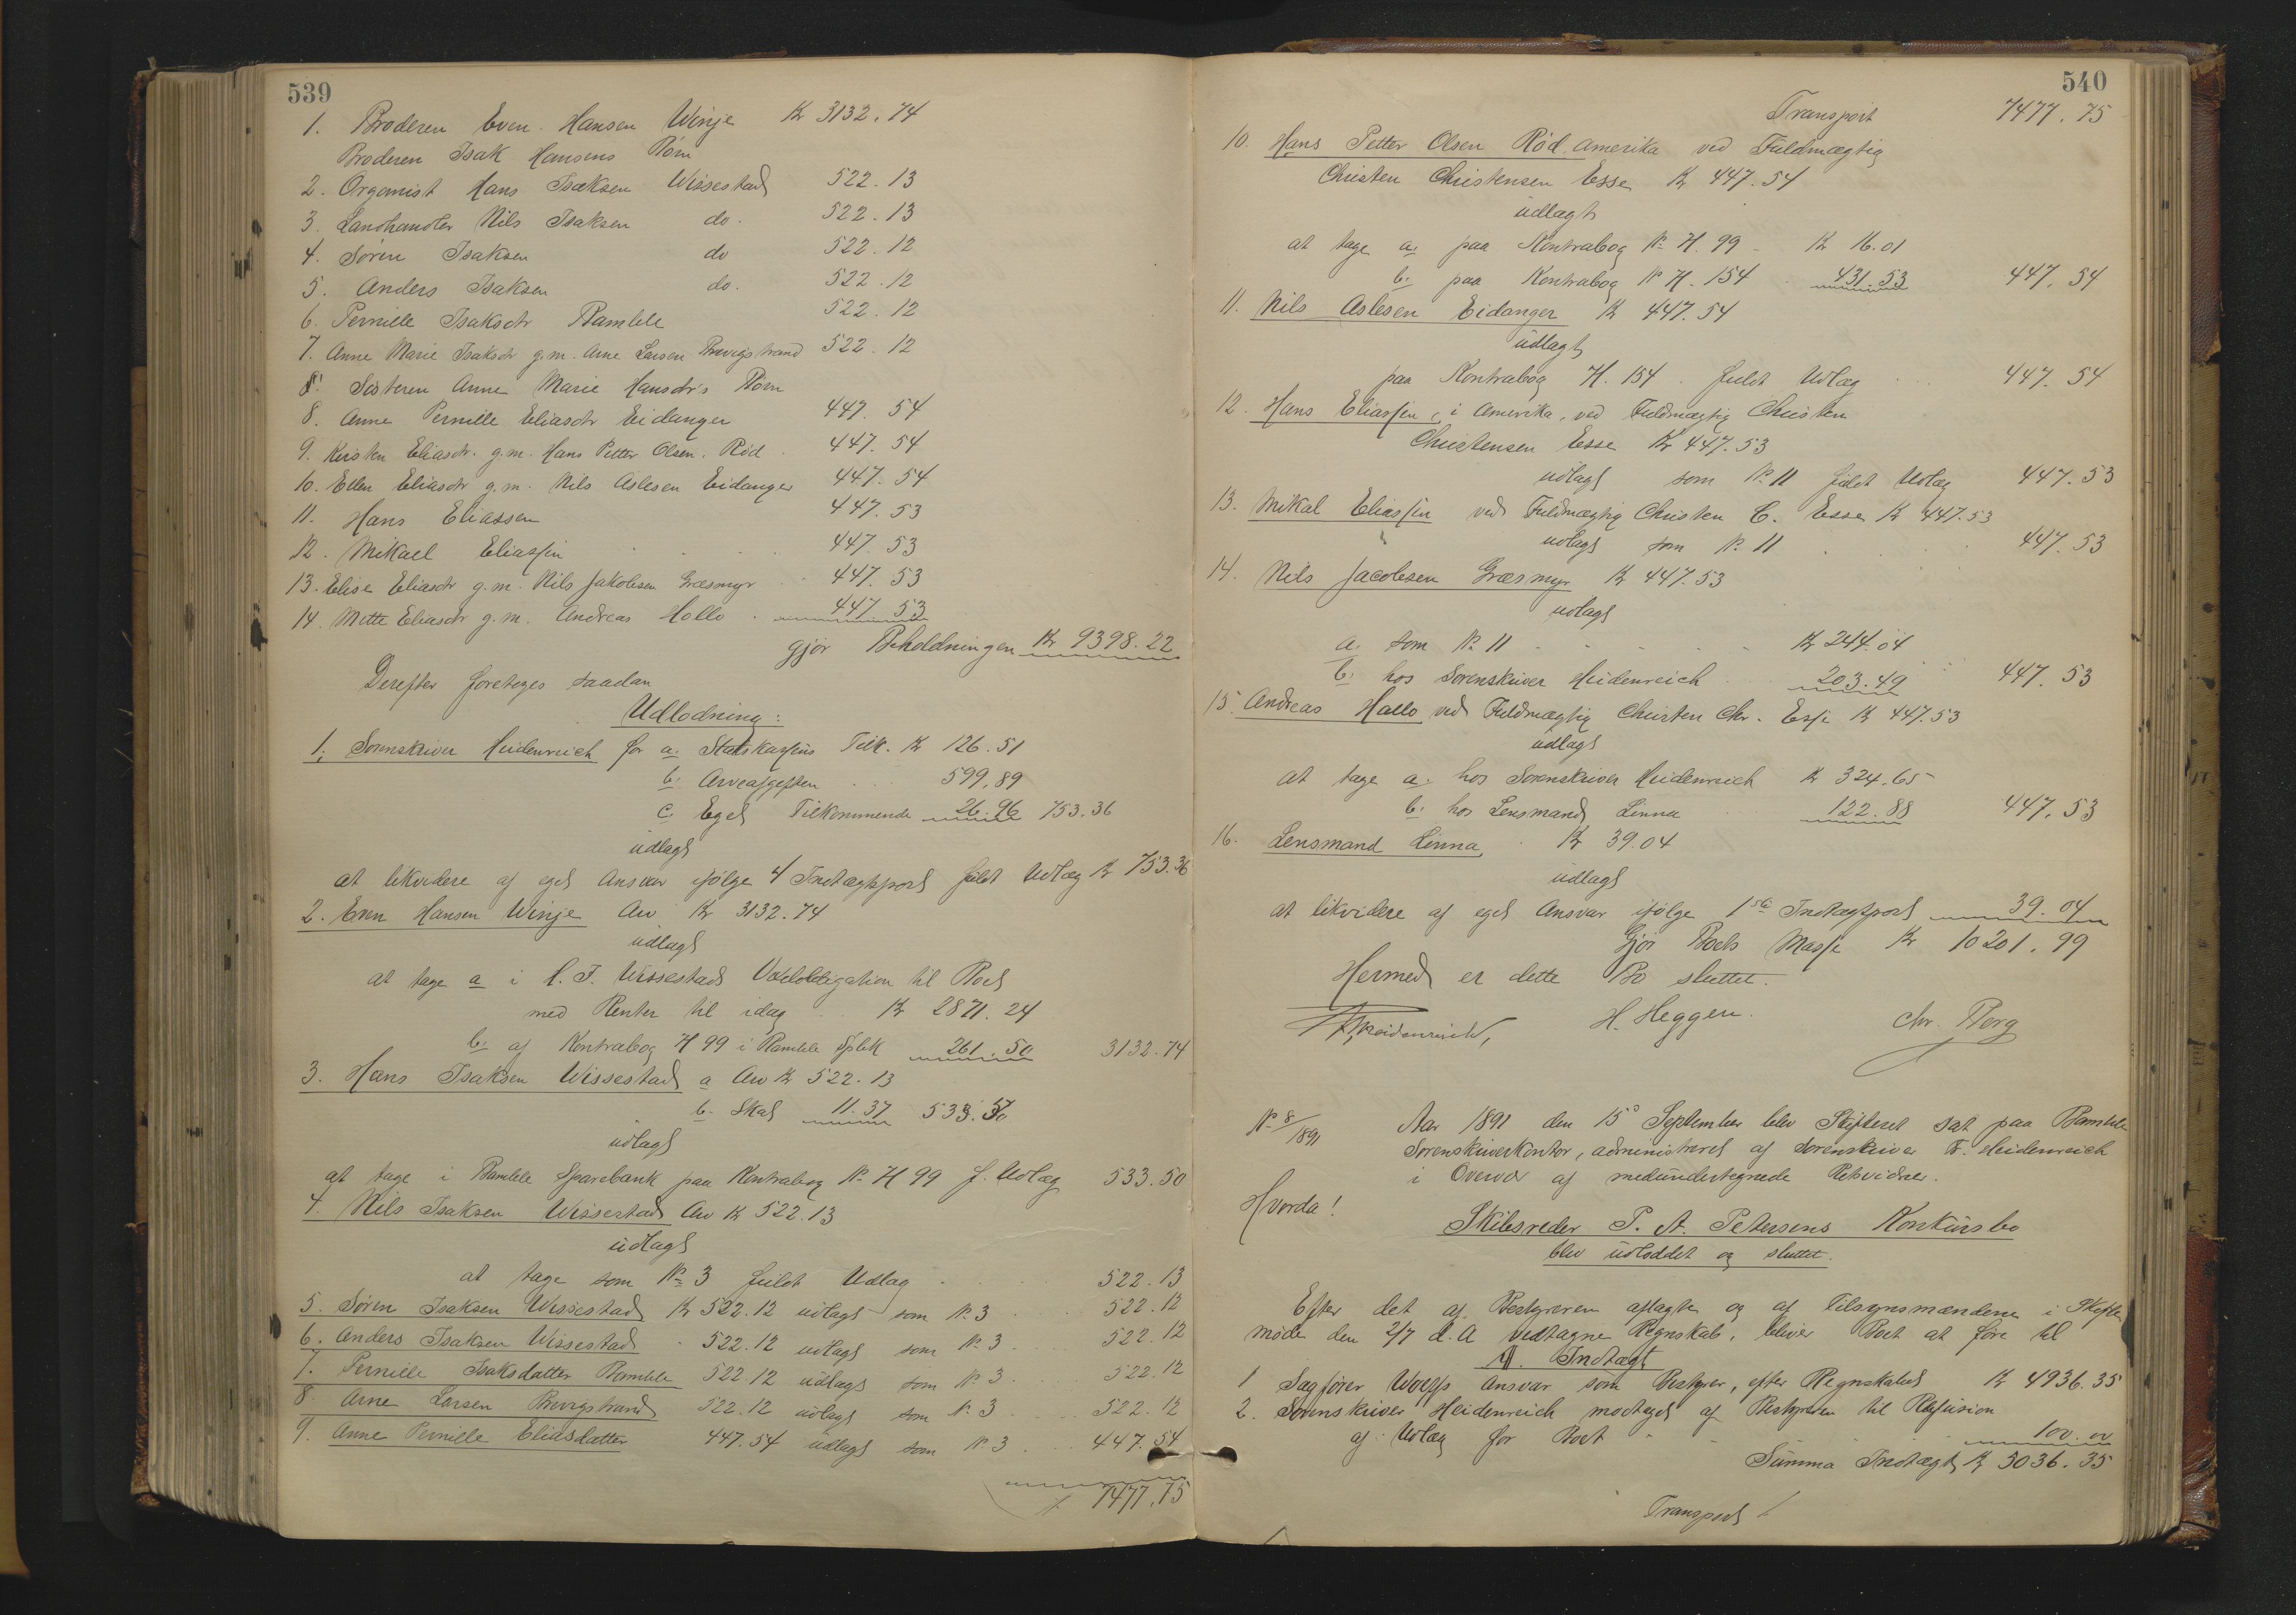 539
1. Broderen Even Hansen Winje Kr 3132.74
Broderen Isak Hansens Børn
2. Organist Hans Isaksen Wissestad 522.13
3. Landhandler Nils Isaksen do. 522.13
4. Søren Isaksen do 522.12
5. Anders Isaksen do. 522.12
6. Pernille Isaksdtr Bamble 522.12
7. Anne Marie Isaksdr g.m. Arne Larsen Brevigstrand 522.12
8! Søsteren Anne Marie Hansdr's Børn
8. Anne Pernille Eliasdtr Eidanger 447.54
9. Kirsten Eliasdr. g.m. Hans Petter Olsen. Rød 447.54
10. Ellen Eliasdtr g.m. Nils Aslesen Eidanger 447.54
11. Hans Eliassen 447.53
12. Mikael Eliassen 447.53
13. Elise Eliasdtr g.m. Nils Jakobsen Græsmyr 447.53
14. Mette Eliasdtr g.m. Andreas Hollo 447.53
gjør Beholdningen Kr 9398.22
Derefter foretoges saadan
Udlodning:
1. Sorenskriver Heidenreich for a. Statskassens Tilk. Kr 126.51
b. Arveafgiften 599.89
c. Eget Tilkommende 26.96 753.36
udlagt
at likvidere af eget Ansvar ifølge 4 Indtægtspost fuldt Udlæg Kr 753.36
2. Even Hansen Winje Arv Kr 3132.74
udlagt
at tage a i H. I. Wissestads Obligation til Boet
med Renter til idag Kr 2871.24
b. af Kontrabog H 99 i Bamble Spbk 261.50 3132.74
3. Hans Isaksen Wissestad a Arv Kr 522.13
b. Skat 11.37 533.50
udlagt
at tage i Bamble Sparebank paa Kontrabog No H 99 f. Udlæg 533.50
4. Nils Isaksen Wissestad Arv Kr 522.13
udlagt
at tage som No 3 fuldt Udlæg 522.13
5. Søren Isaksen Wissestad Kr 522.12 udlagt som No 3 522.12
6. Anders Isaksen Wissestad 522.12 udlagt som No 3 522.12
7. Pernille Isaksdatter Bamble 522.12 udlagt som No 3 522.12
8 Arne Larsen Brevigstrand 522.12 udlagt som No 3 522.12
9. Anne Pernille Eliasdatter 447.54 udlagt som No 3 447.54
7477.75
540
Transport 7477.75
10. Hans Petter Olsen Rød Amerika ved Fuldmægtig
Christen Christensen Esse Kr 447.54
udlagt
at tage a. paa Kontrabog No H. 99 - Kr 16.01
b. paa Kontrabog No H. 154 431.53 447.54
11. Nils Aslesen Eidanger Kr 447.54
udlagt
paa Kontrabog H. 154. fuldt Udlæg 447.54
12. Hans Eliassen, i Amerika, ved Fuldmægtig Christen
Christensen Esse Kr 447.53
udlagt som No 11 fuldt Udlæg 447.53
13. Mikal Eliassen ved Fuldmægtig Christen C. Esse Kr 447.53
udlagt som No 11 447.53
14. Nils Jacobsen Græsmyr Kr 447.53
udlagt
a. som No 11 Kr 244.04
b. hos Sorenskriver Heidenreich 203.49 447.53
15. Andreas Hallo ved Fuldmægtig Christen Chr. Esse Kr 447.53
udlagt
at tage a. hos Sorenskriver Heidenreich Kr 324.65
b. hos Lensmand Linna 122.88 447.53
16. Lensmand Linna Kr 39.04
udlagt
at likvidere af eget Ansvar ifølge 1ste Indtægtpost 39.04
Gjør Boets Masse Kr 10201.99
Hermed er dette Bo sluttet.
Heidenreich, H. Heggen. Chr. Berg
No 8/1891 Aar 1891 den 15de September blev Skifteret sat paa Bamble
Sorenskriverkontor, administreret af Sorenskriver F. Heidenreich
i Overvær af medundertegnede Retsvidner.
Hvorda!
Skibsreder P. A. Petersens Konkursbo
blev udloddet og sluttet.
Efter det af Bestyreren aflagte og af Tilsynsmændene i Skifte
møde den 2/7 d. A vedtagne Regnskab, bliver Boet at føre til
Indtægt
1 Sagfører Ansvar som Bestyrer, efter Regnskabet Kr 4936.35
2. Sorenskriver Heidenreich modtaget af Bestyreren til Refusion
af Udlæg for Boet 100.00
Summa Indtægt Kr 5036.35
Transport